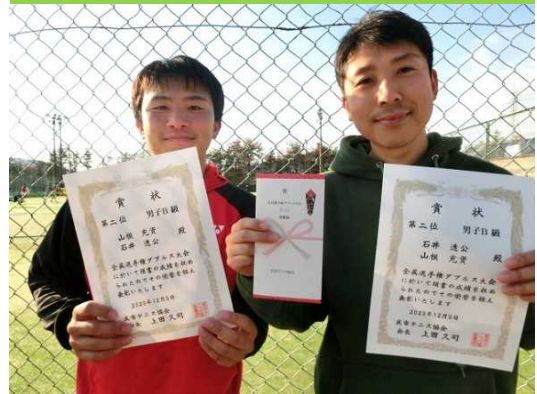 賞状
第二位 男子B級
山根 充資
石井 透公 殿
全呉選手権ダブルス大会
に於いて頭書の成績を収め
られたのでその栄誉を称え
表彰いたします
2025年12月5日
呉市テニス協会
会長 上田久司
賞
賞状
第二位 男子B級
石井 透公
山根 充資 殿
全呉選手権ダブルス大会
に於いて頭書の成績を収め
られたのでその栄誉を称え
表彰いたします
2025年12月5日
呉市テニス協会
会長 上田久司